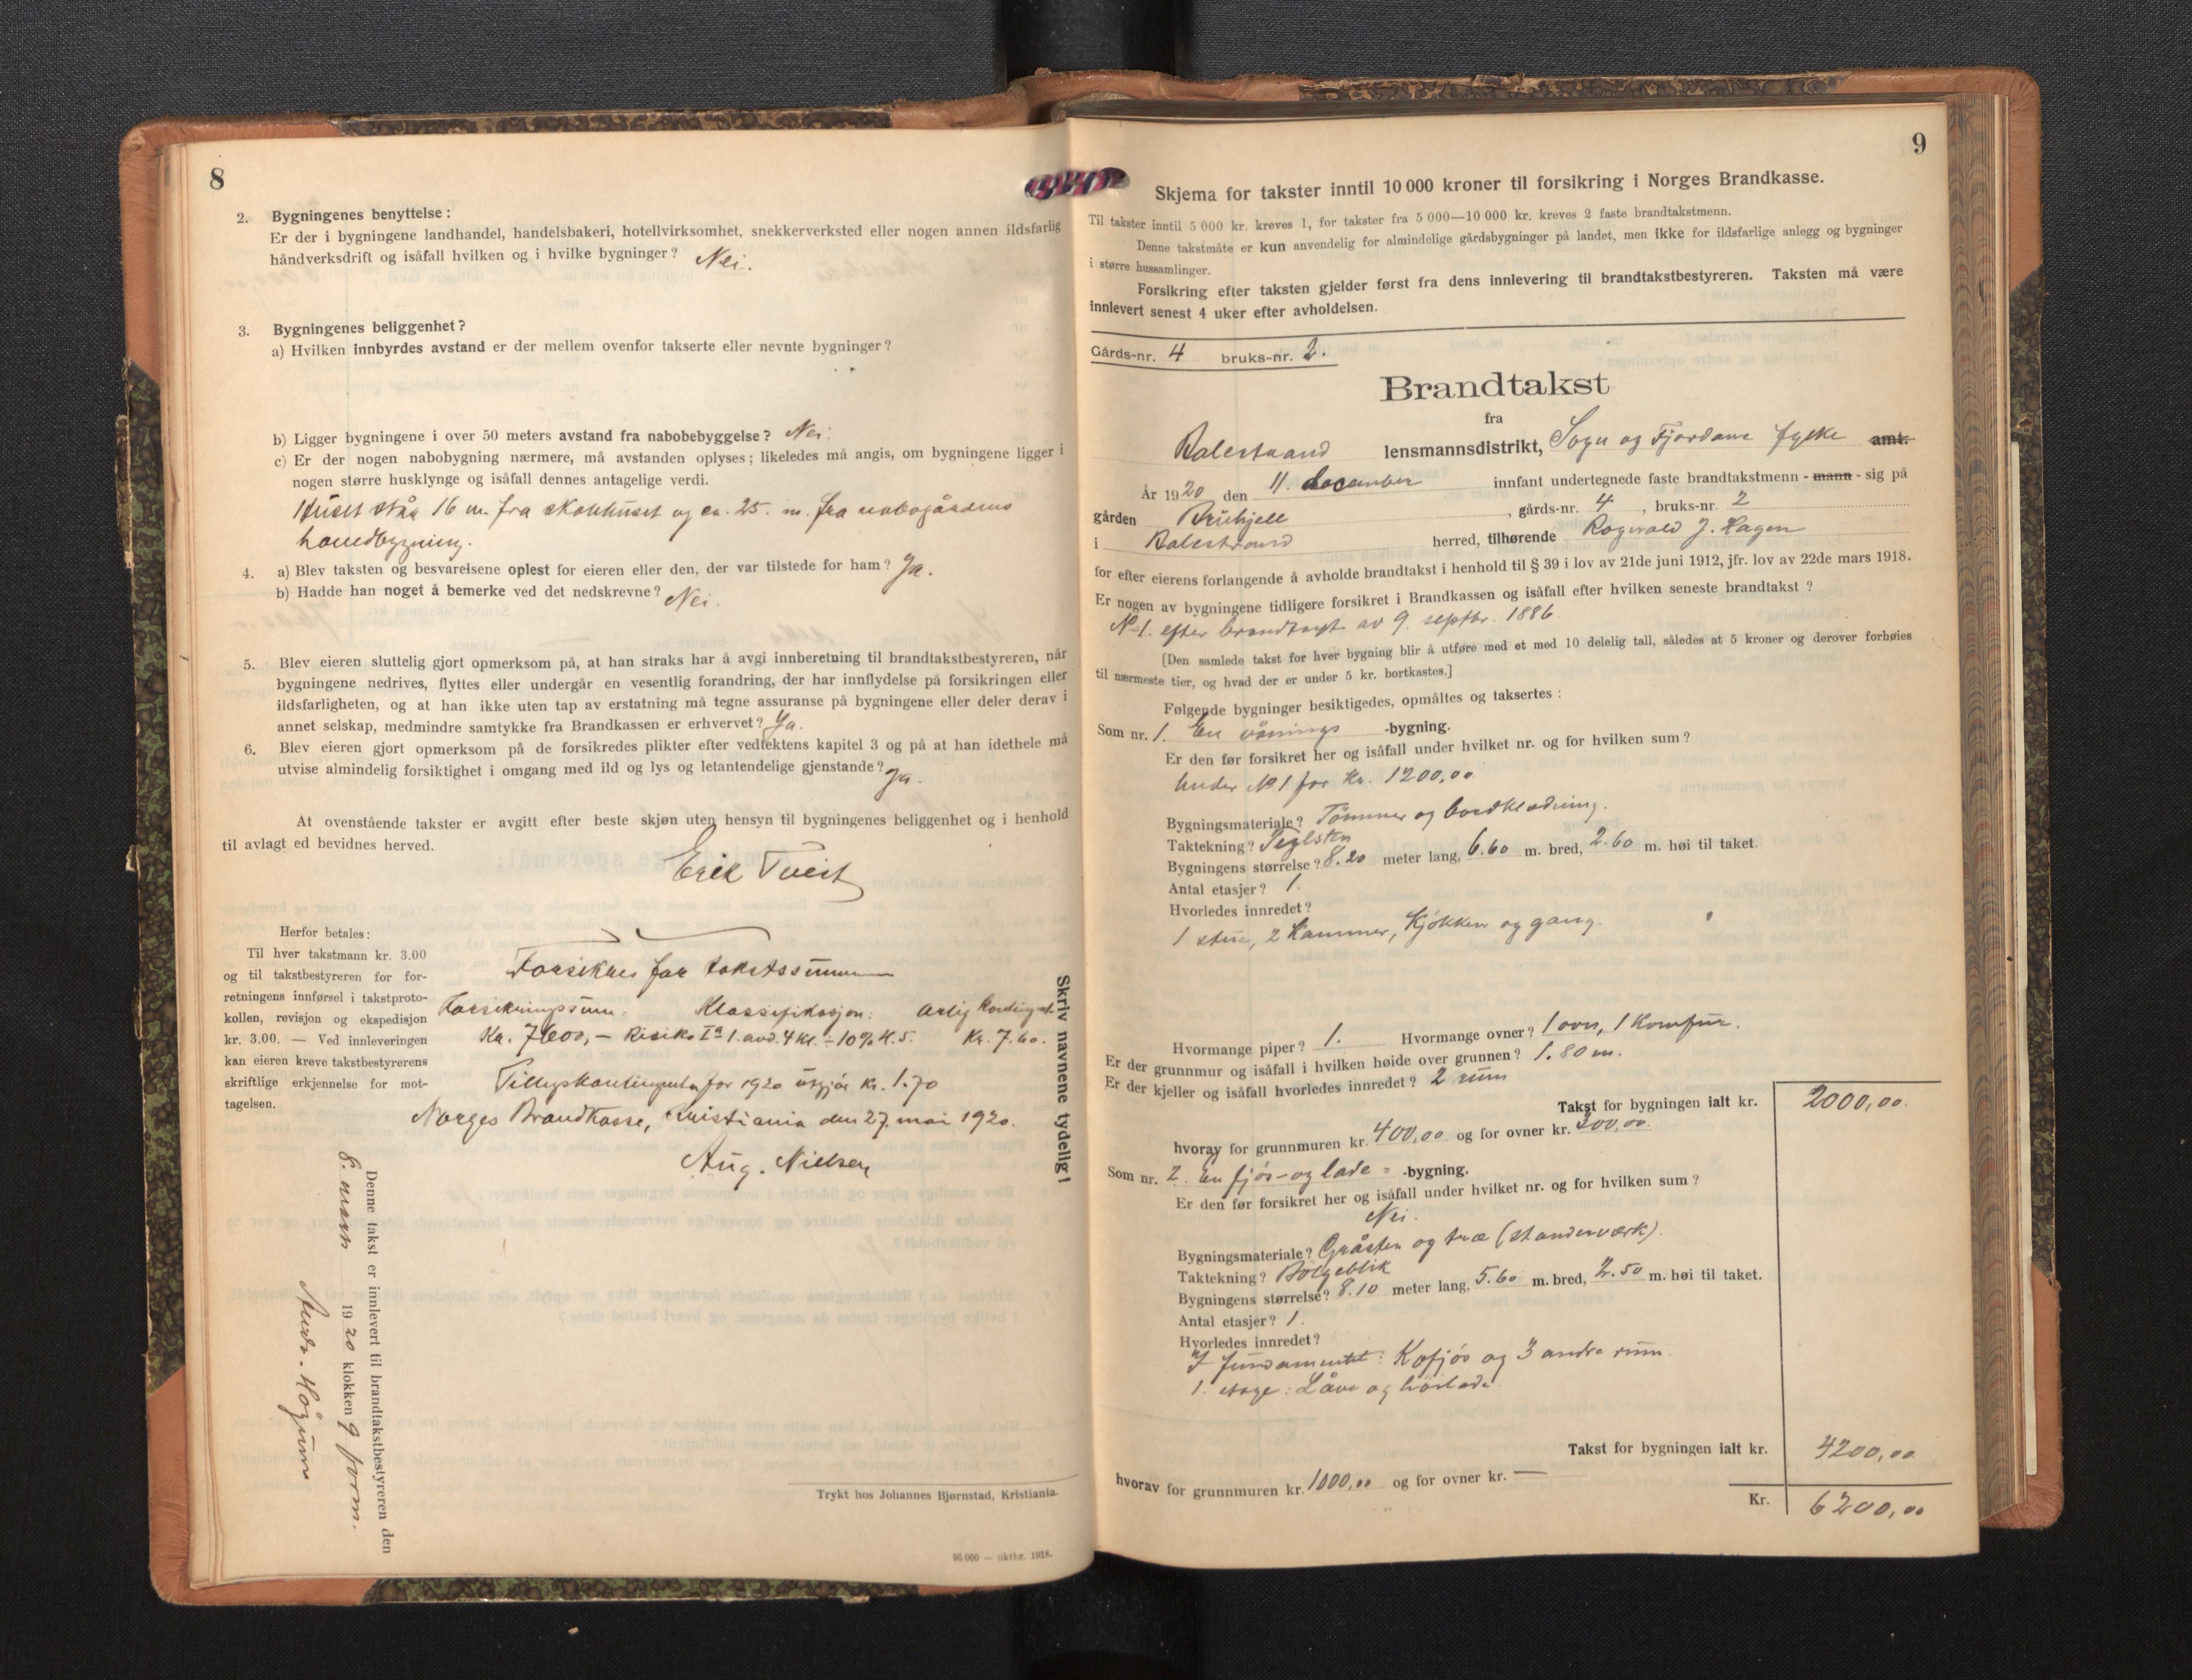 8
2. Bygningenes benyttelse:
Er der i bygningene landhandel, handelsbakeri, hotellvirksomhet, snekkerverksted eller nogen annen ildsfarlig
håndverksdrift og isåfall hvilken og i hvilke bygninger? Nei.
3. Bygningenes beliggenhet?
a) Hvilken innbyrdes avstand er der mellem ovenfor takserte eller nevnte bygninger?
b) Ligger bygningene i over 50 meters avstand fra nabobebyggelse? Nei.
c) Er der nogen nabobygning nærmere, må avstanden oplyses; likeledes må angis, om bygningene ligger i
nogen større husklynge og isåfall dennes antagelige verdi.
Huset står 16 m. fra skolehuset og ca. 25. m. fra nabogårdens
hovedbygning.
4. a) Blev taksten og besvarelsene oplest for eieren eller den, der var tilstede for ham? Ja.
b) Hadde han noget å bemerke ved det nedskrevne? Nei.
5. Blev eieren sluttelig gjort opmerksom på, at han straks har å avgi innberetning til brandtakstbestyreren, når
bygningene nedrives, flyttes eller undergår en vesentlig forandring, der har innflydelse på forsikringen eller
ildsfarligheten, og at han ikke uten tap av erstatning må tegne assuranse på bygningene eller deler derav i
annet selskap, medmindre samtykke fra Brandkassen er erhvervet? Ja.
6. Blev eieren gjort opmerksom på de forsikredes plikter efter vedtektens kapitel 3 og på at han idethele må
utvise almindelig forsiktighet i omgang med ild og lys og letantendelige gjenstande? Ja.
At ovenstående takster er avgitt efter beste skjøn uten hensyn til bygningenes beliggenhet og i henhold
til avlagt ed bevidnes herved.
Erik Tveit
Herfor betales:
Til hver takstmann kr. 3.00
og til takstbestyreren for for-
retningens innførsel i takstproto-
kollen, revisjon og ekspedisjon
kr. 3.00. — Ved innleveringen
kan eieren kreve takstbestyrerens
skriftlige erkjennelse for mot-
tagelsen.
Forsikres for takstsummen
Forsikringssum. Klassifikasjon: Årlig kontingent.
Kr. 7600,- Risiko Iª 1. avd. 4 kl. ÷ 10% K.5. Kr. 7.60.
Tillegskontingenten for 1920 utgjör kr. 1.70
Norges Brandkasse, Kristiania den 27. mai 1920.
Aug. Nielsen
Skriv navnene tydelig!
Denne takst er innlevert til brandtakstbestyreren den
8. mars 1920 klokken 9 form.
Trykt hos Johannes Bjørnstad, Kristiania.
95 000 — oktbr. 1918.
9
Skjema for takster inntil 10 000 kroner til forsikring i Norges Brandkasse.
Til takster inntil 5 000 kr. kreves 1, for takster fra 5 000—10 000 kr. kreves 2 faste brandtakstmenn.
Denne takstmåte er kun anvendelig for almindelige gårdsbygninger på landet, men ikke for ildsfarlige anlegg og bygninger
i større hussamlinger.
Forsikring efter taksten gjelder først fra dens innlevering til brandtakstbestyreren. Taksten må være
innlevert senest 4 uker efter avholdelsen.
Gårds-nr. 4 bruks-nr. 2.
Brandtakst
fra
Balestrand lensmannsdistrikt, Sogn og Fjordane fylke amt.
År 1920 den 11. december innfant undertegnede faste brandtakstmenn - mann - sig på
gården , gårds-nr. 4 , bruks-nr. 2
i Balestrand herred, tilhørende Ragnvald J. Hagen
for efter eierens forlangende å avholde brandtakst i henhold til § 39 i lov av 21de juni 1912, jfr. lov av 22de mars 1918.
Er nogen av bygningene tidligere forsikret i Brandkassen og isåfall efter hvilken seneste brandtakst?
No 1. efter brandtaxt av 9. septbr. 1886
[Den samlede takst for hver bygning blir å utføre med et med 10 delelig tall, således at 5 kroner og derover forhøies
til nærmeste tier, og hvad der er under 5 kr. bortkastes.]
Følgende bygninger besiktigedes, opmåltes og taksertes:
Som nr. 1. En vånings -bygning.
Er den før forsikret her og isåfall under hvilket nr. og for hvilken sum?
Under No 1 for Kr. 1200,00
Bygningsmateriale? Tömmer og bordklædning.
Taktekning? Teglsten
Bygningens størrelse? 8.20 meter lang, 6.60 m. bred, 2.60 m. høi til taket.
Antal etasjer? 1.
Hvorledes innredet?
1 stue, 2 Kammer, Kjökken og gang.
Hvormange piper? 1. Hvormange ovner? 1 ovn, 1 Komfur.
Er der grunnmur og isåfall i hvilken høide over grunnen? 1.80 m.
Er der kjeller og isåfall hvorledes innredet? 2 rum
Takst for bygningen ialt kr. 2000,00.
hvorav for grunnmuren kr. 400,00 og for ovner kr. 200,00.
Som nr. 2. En fjös- og lade- -bygning.
Er den før forsikret her og isåfall under hvilket nr. og for hvilken sum?
Nei.
Bygningsmateriale? Gråsten og træ (standerværk).
Taktekning? Bölgeblik
Bygningens størrelse? 8.10 meter lang, 5.60 m. bred, 2.50 m. høi til taket.
Antal etasjer? 1.
Hvorledes innredet?
I fundamentet: Kofjös og 3 andre rum.
1. etage: Låve og hölade.
Takst for bygningen ialt kr. 4200,00
hvorav for grunnmuren kr. 1000,00 og for ovner kr. —
Kr. 6200,00